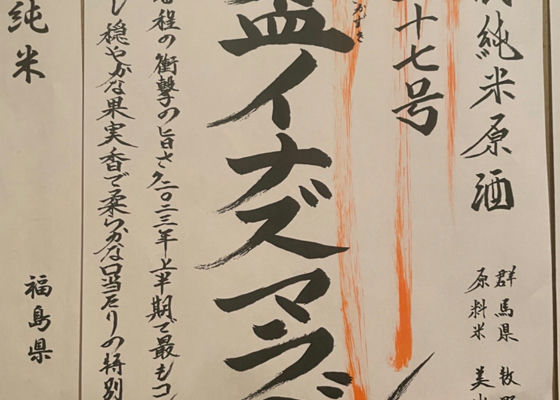 純米原酒
群馬県 牧野
原料米 美山
十七号
盃イナズマラベ
かずき
程の衝撃の旨さ久二〇二三年上半期で最もコ
し穏やかな果実香で柔らかな口当たりの特別
純米
福島県